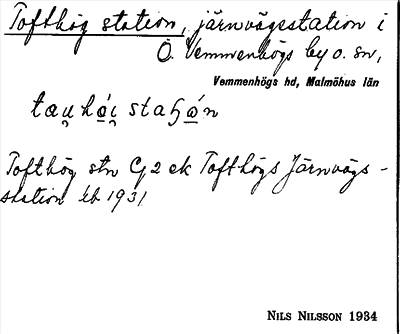 Tofthög station, järnvägsstation i
Ö. Vemmenhögs by o. sn,
Vemmenhögs hd, Malmöhus län
Tofthög stn Cj 2 ek Tofthögs Järnvägs-
station kb 1931
NILS NILSSON 1934